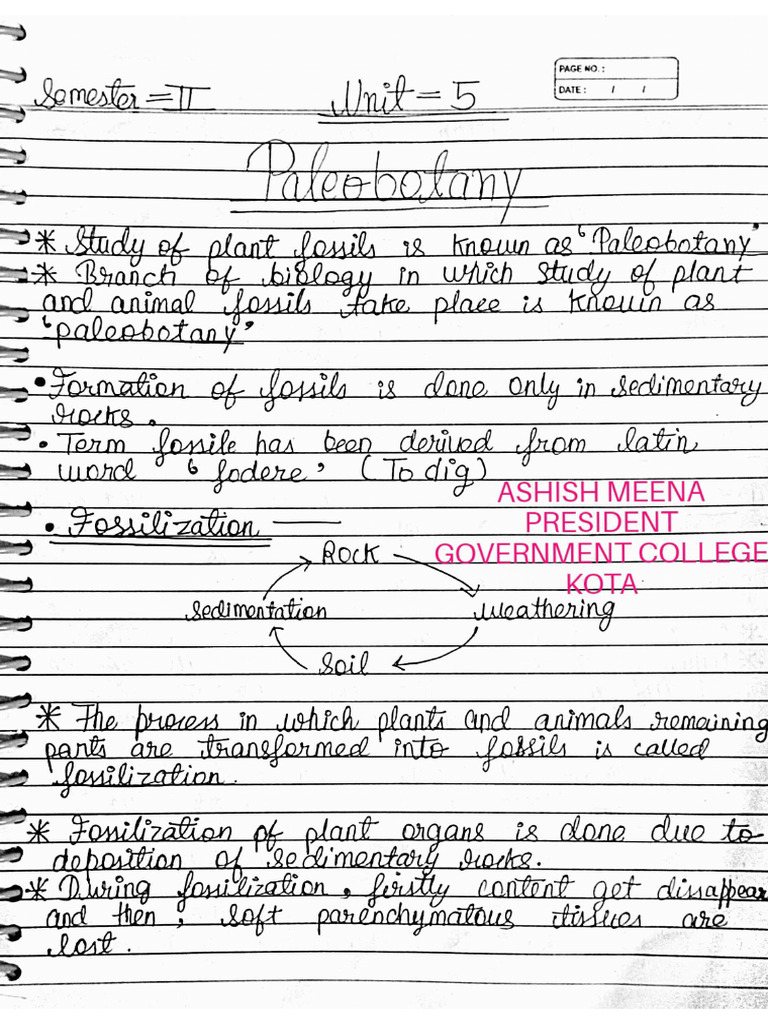 PAGE NO. :
DATE : / /
Semester = II Unit = 5
Paleobotany
* Study of plant fossils is known as "Paleobotany"
* Branch of biology in which study of plant
and animal fossils take place is known as
'paleobotany'
• Formation of fossils is done only in sedimentary
rocks.
• Term fossile has been derived from latin
word 'fodere' (To dig)
ASHISH MEENA
PRESIDENT
GOVERNMENT COLLEGE
KOTA
• Fossilization —
Rock
sedimentation weathering
Soil
* The process in which plants and animals remaining
parts are transformed into fossils is called
fossilization.
* Fossilization of plant organs is done due to
deposition of sedimentary rocks.
* During fossilization, firstly content get dissappear
and then, soft parenchymatous tissues are
lost.